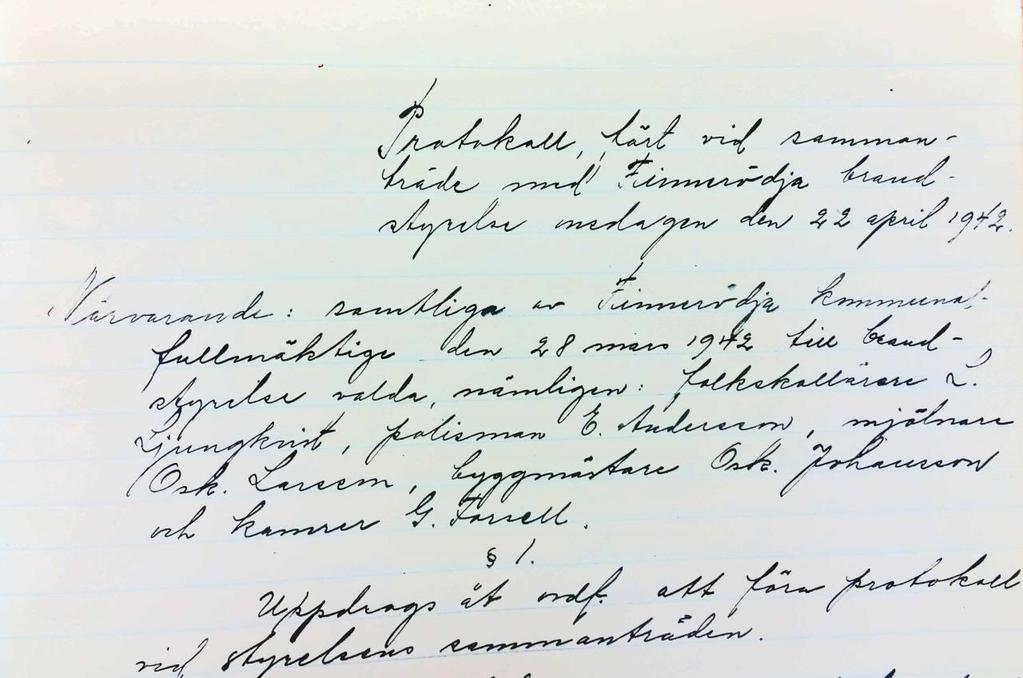 Protokoll, fört vid samman-
träde med Finnerödja brand-
styrelse onsdagen den 22 april 1942.
Närvarande: samtliga av Finnerödja kommunal-
fullmäktige den 28 mars 1942 till brand-
styrelse valda, nämligen: folkskollärare L.
Ljungkvist, polisman E. Andersson, mjölnare
Osk. Larsson, byggmästare Osk. Johansson
och kamrer G. Forsell.
§ 1.
Uppdrogs åt ordf. att föra protokoll
vid styrelsens sammanträden.